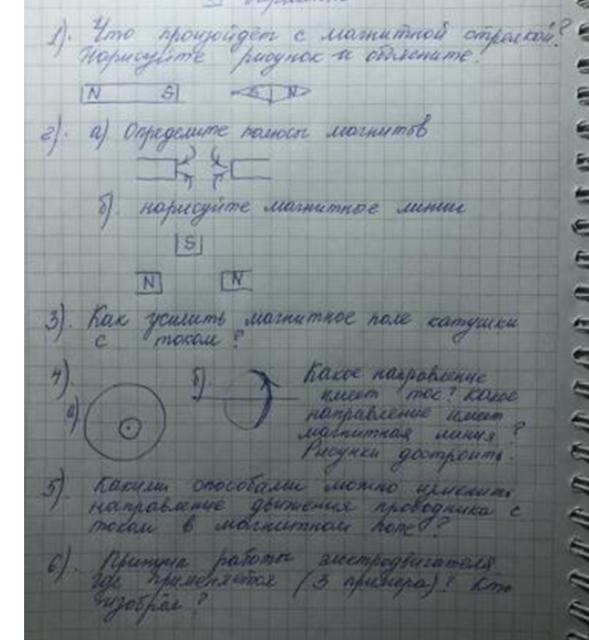 вариант
1). Что произойдёт с магнитной стрелкой?
Нарисуйте рисунок и объясните.
N S S N
2). а) Определите полюсы магнитов
б). нарисуйте магнитные линии
S
N N
3). Как усилить магнитное поле катушки
с током?
4).
а) б). Какое направление
имеет ток? Какое
направление имеет
магнитная линия?
Рисунки достроить.
5). Какими способами можно изменить
направление движения проводника с
током в магнитном поле?
6). Принцип работы электродвигателя.
Где применяется (3 примера)? Кто
изобрёл?